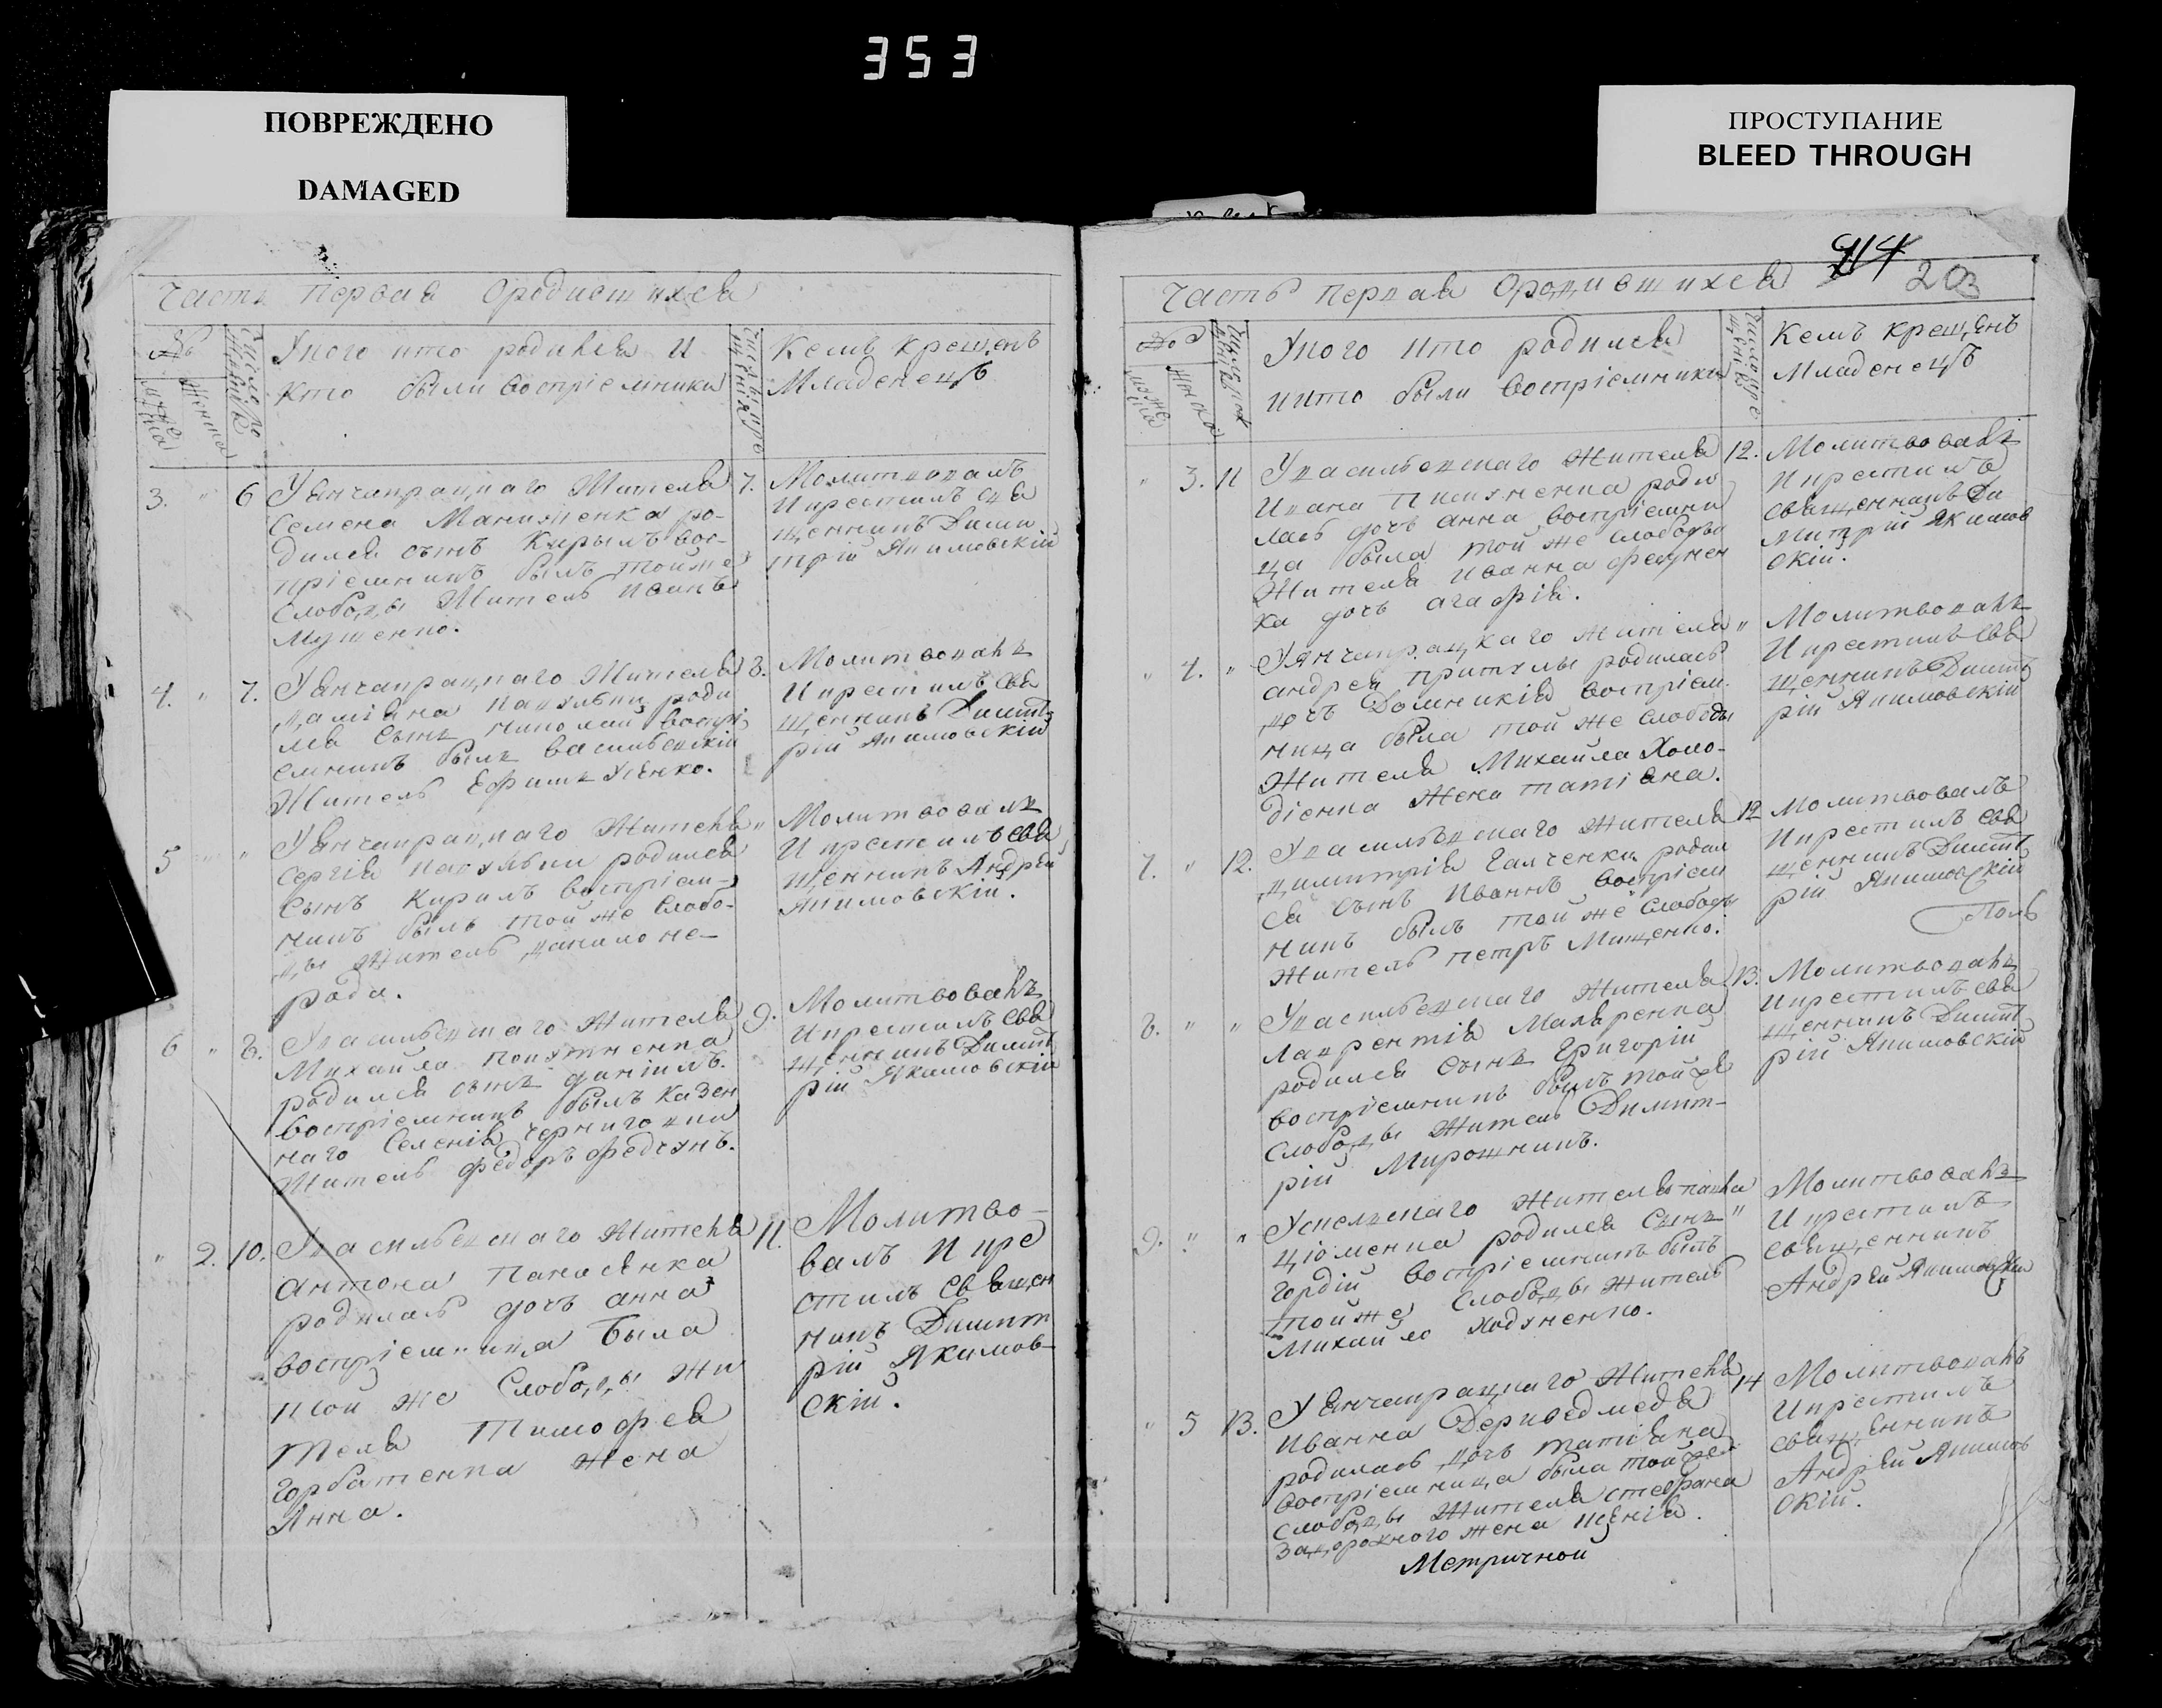 353
ПОВРЕЖДЕНО
DAMAGED
ПРОСТУПАНИЕ
BLEED THROUGH
Часть первая Ородившихся
№
Уного кто родился и
кто были воспріемники
Кемъ крещенъ
Младенецъ
3. " 6 Уянчакрацкаго Жителя
Семена Манженка ро-
дился сынъ Кирылъ вос-
пріемникъ былъ тойже
слободы Житель Иванъ
Мушенко.
7. Молитвовалъ
Икрестилъ свя
щенникъ Дими
трій Якимовскій
4. " 7. Уянчакрацкаго Жителя
даміана роди
лся сынъ николай воспрі
емникъ былъ васильевскій
Житель Ефимъ Усенко.
8. Молитвовалъ
Икрестилъ свя
щенникъ Димит
рій Якимовскій
5 " " Уянчакрацкаго Жителя
Сергія родился
Сынъ Кирилъ воспріем-
никъ былъ той же слобо-
ды житель данило не-
рода.
" Молитвовалъ
Икрестилъ свя
щенникъ Андрей
Якимовскій.
6 " 8. Увасильевскаго Жителя
Михайла
родился сынъ даніилъ.
воспріемникъ былъ казен
наго селенія
Житель федоръ федчунъ.
9. Молитвовалъ
Икрестилъ свя
щенникъ Димит
рій Якимовскій
" 2. 10. Увасильевскаго Жителя
антона Панасенка
родилась дочь анна
воспріемница была
той же Слободы Жи
теля Тимофея
Горбатенка жена
Анна.
11. Молитво-
валъ И кре
стилъ Священ
никъ Димит
рій Якимов-
скій.
114
203
Часть первая Ородившихся
Уного кто родился
икто были воспріемники
Кемъ крещенъ
Младенецъ
" 3. 11 Увасильевскаго жителя
Ивана роди
лась дочь анна воспріемни
ца была той же слободы
Жителя иванна
ка дочь агафія.
12. Молитвовалъ
Икрестилъ
священникъ Ди
митрій Якимов
скій.
" 4. " Уянчакрацкаго жителя
андрея притулы родилась
дочь Домникія воспріем
ница была той же слободы
Жителя Михайла Холо-
діенка Жена татіяна.
" Молитвовалъ
Икрестилъ свя
щенникъ Димит
рій Якимовскій
7. " 12. Увасильевскаго жителя
димитрія Галченка родил
ся сынъ Иваннъ воспріем
никъ былъ той же слободы
житель петръ Мищенко.
12 Молитвовалъ
Икрестилъ свя
щенникъ Димит
рій Якимовскій
8. " " Увасильевскаго жителя
лаврентія Макаренка
родился сынъ Григорій
воспріемникъ былъ той же
слободы житель Димит-
рій Мирошникъ.
13. Молитвовалъ
Икрестилъ свя
щенникъ Димит
рій Якимовскій
9. " " жителя павла
родился сынъ
Гордій воспріемникъ былъ
той же слободы житель
михайло Ходуненко.
" Молитвовалъ
Икрестилъ
священникъ
Андрей Якимовскій
" 5 13. Уянчакрацкаго Жителя
иванна Деріведмедя
родилась дочь татіяна
воспріемница была той же
слободы Жителя стефана
задорожного жена
14 Молитвовалъ
Икрестилъ
священникъ
Андрей Якимов
скій.
Метричной